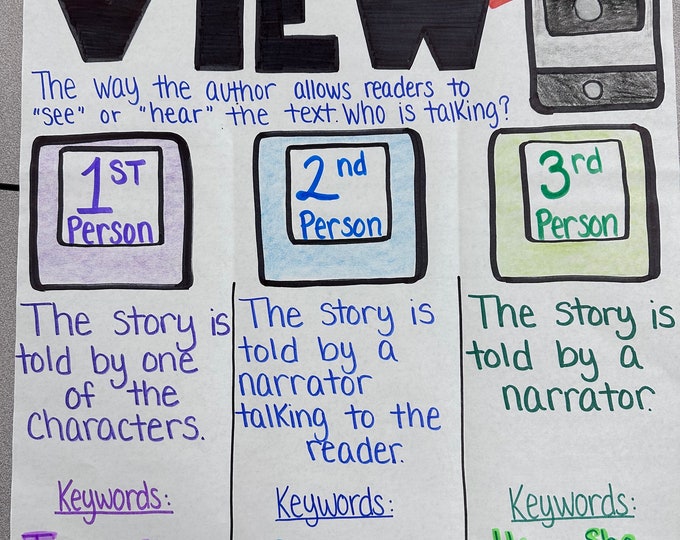 VIEW
The way the author allows readers to
"see" or "hear" the text. Who is talking?
1ST
Person
2nd
Person
3rd
Person
The story is
told by one
of the
characters.
The story is
told by a
narrator
talking to the
reader.
The story is
told by a
narrator.
Keywords:
Keywords:
Keywords:
She